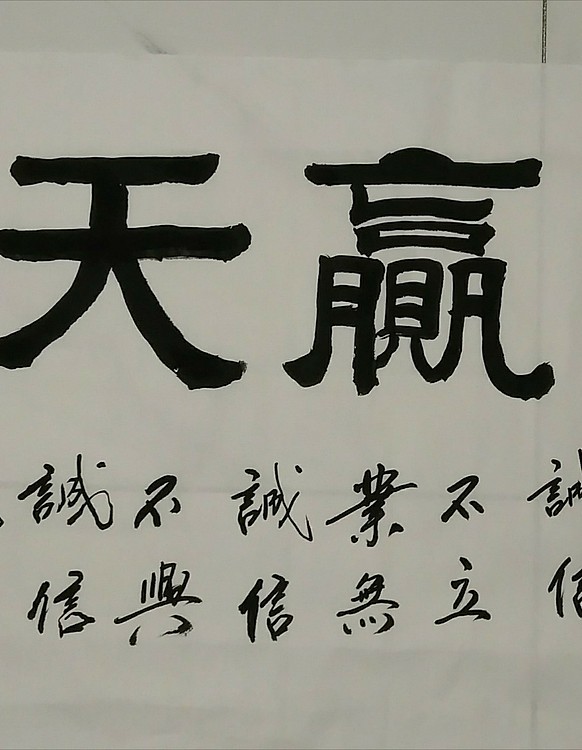 贏天
誠信
不立
業無
誠信
不興
誠信